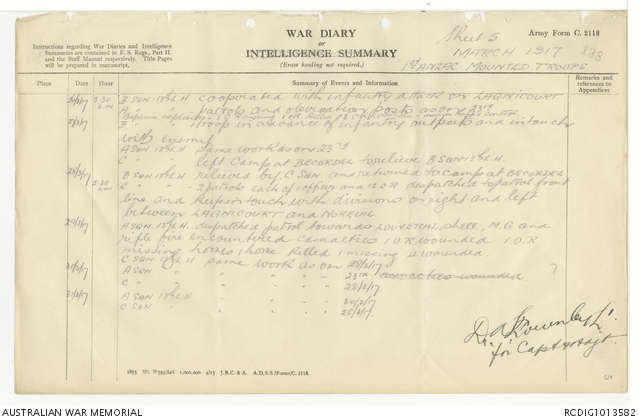 WAR DIARY
or
INTELLIGENCE SUMMARY
(Erase heading not required.)
Instructions regarding War Diaries and Intelligence
Summaries are contained in F. S. Regs., Part II.
and the Staff Manual respectively. Title Pages
will be prepared in manuscript.
Sheet 5
Army Form C. 2118
MARCH 1917
1st ANZAC MOUNTED TROOPS
Place Date Hour Summary of Events and Information Remarks and references to Appendices
B SQN 13th LH cooperated with infantry attack on LAGNICOURT
A " patrols and observation posts as on 23rd
B " 1 troop in advance of infantry outposts and in touch
with enemy
A SQN 13th LH same work as on 23rd
C " " left Camp at BECORDEL to relieve B SQN 13th LH
28/3/17 B SQN 13th LH relieved by C SQN and returned to camp at BECORDEL
C " " 2 patrols each of 1 officer and 12 O.R dispatched to patrol front
line and keep in touch with divisions on right and left
between LAGNICOURT and NOREUIL
29/3/17 A SQN 13th LH. dispatched patrol towards LOUVERVAL, shell, M.G and
rifle fire encountered casualties 1 O.R. wounded 1 O.R
missing horses 1 horse killed 1 missing 4 wounded
C SQN 13th LH same work as on 28/3/17
A SQN " " " " " 23rd casualties wounded ?
C " " " " " 28/3/17
31/3/17 A SQN 13th LH " " " 30/3/17
C SQN " " " " 28/3/17
Lt.
for Capt & Adjt.
AUSTRALIAN WAR MEMORIAL
RCDIG1013582